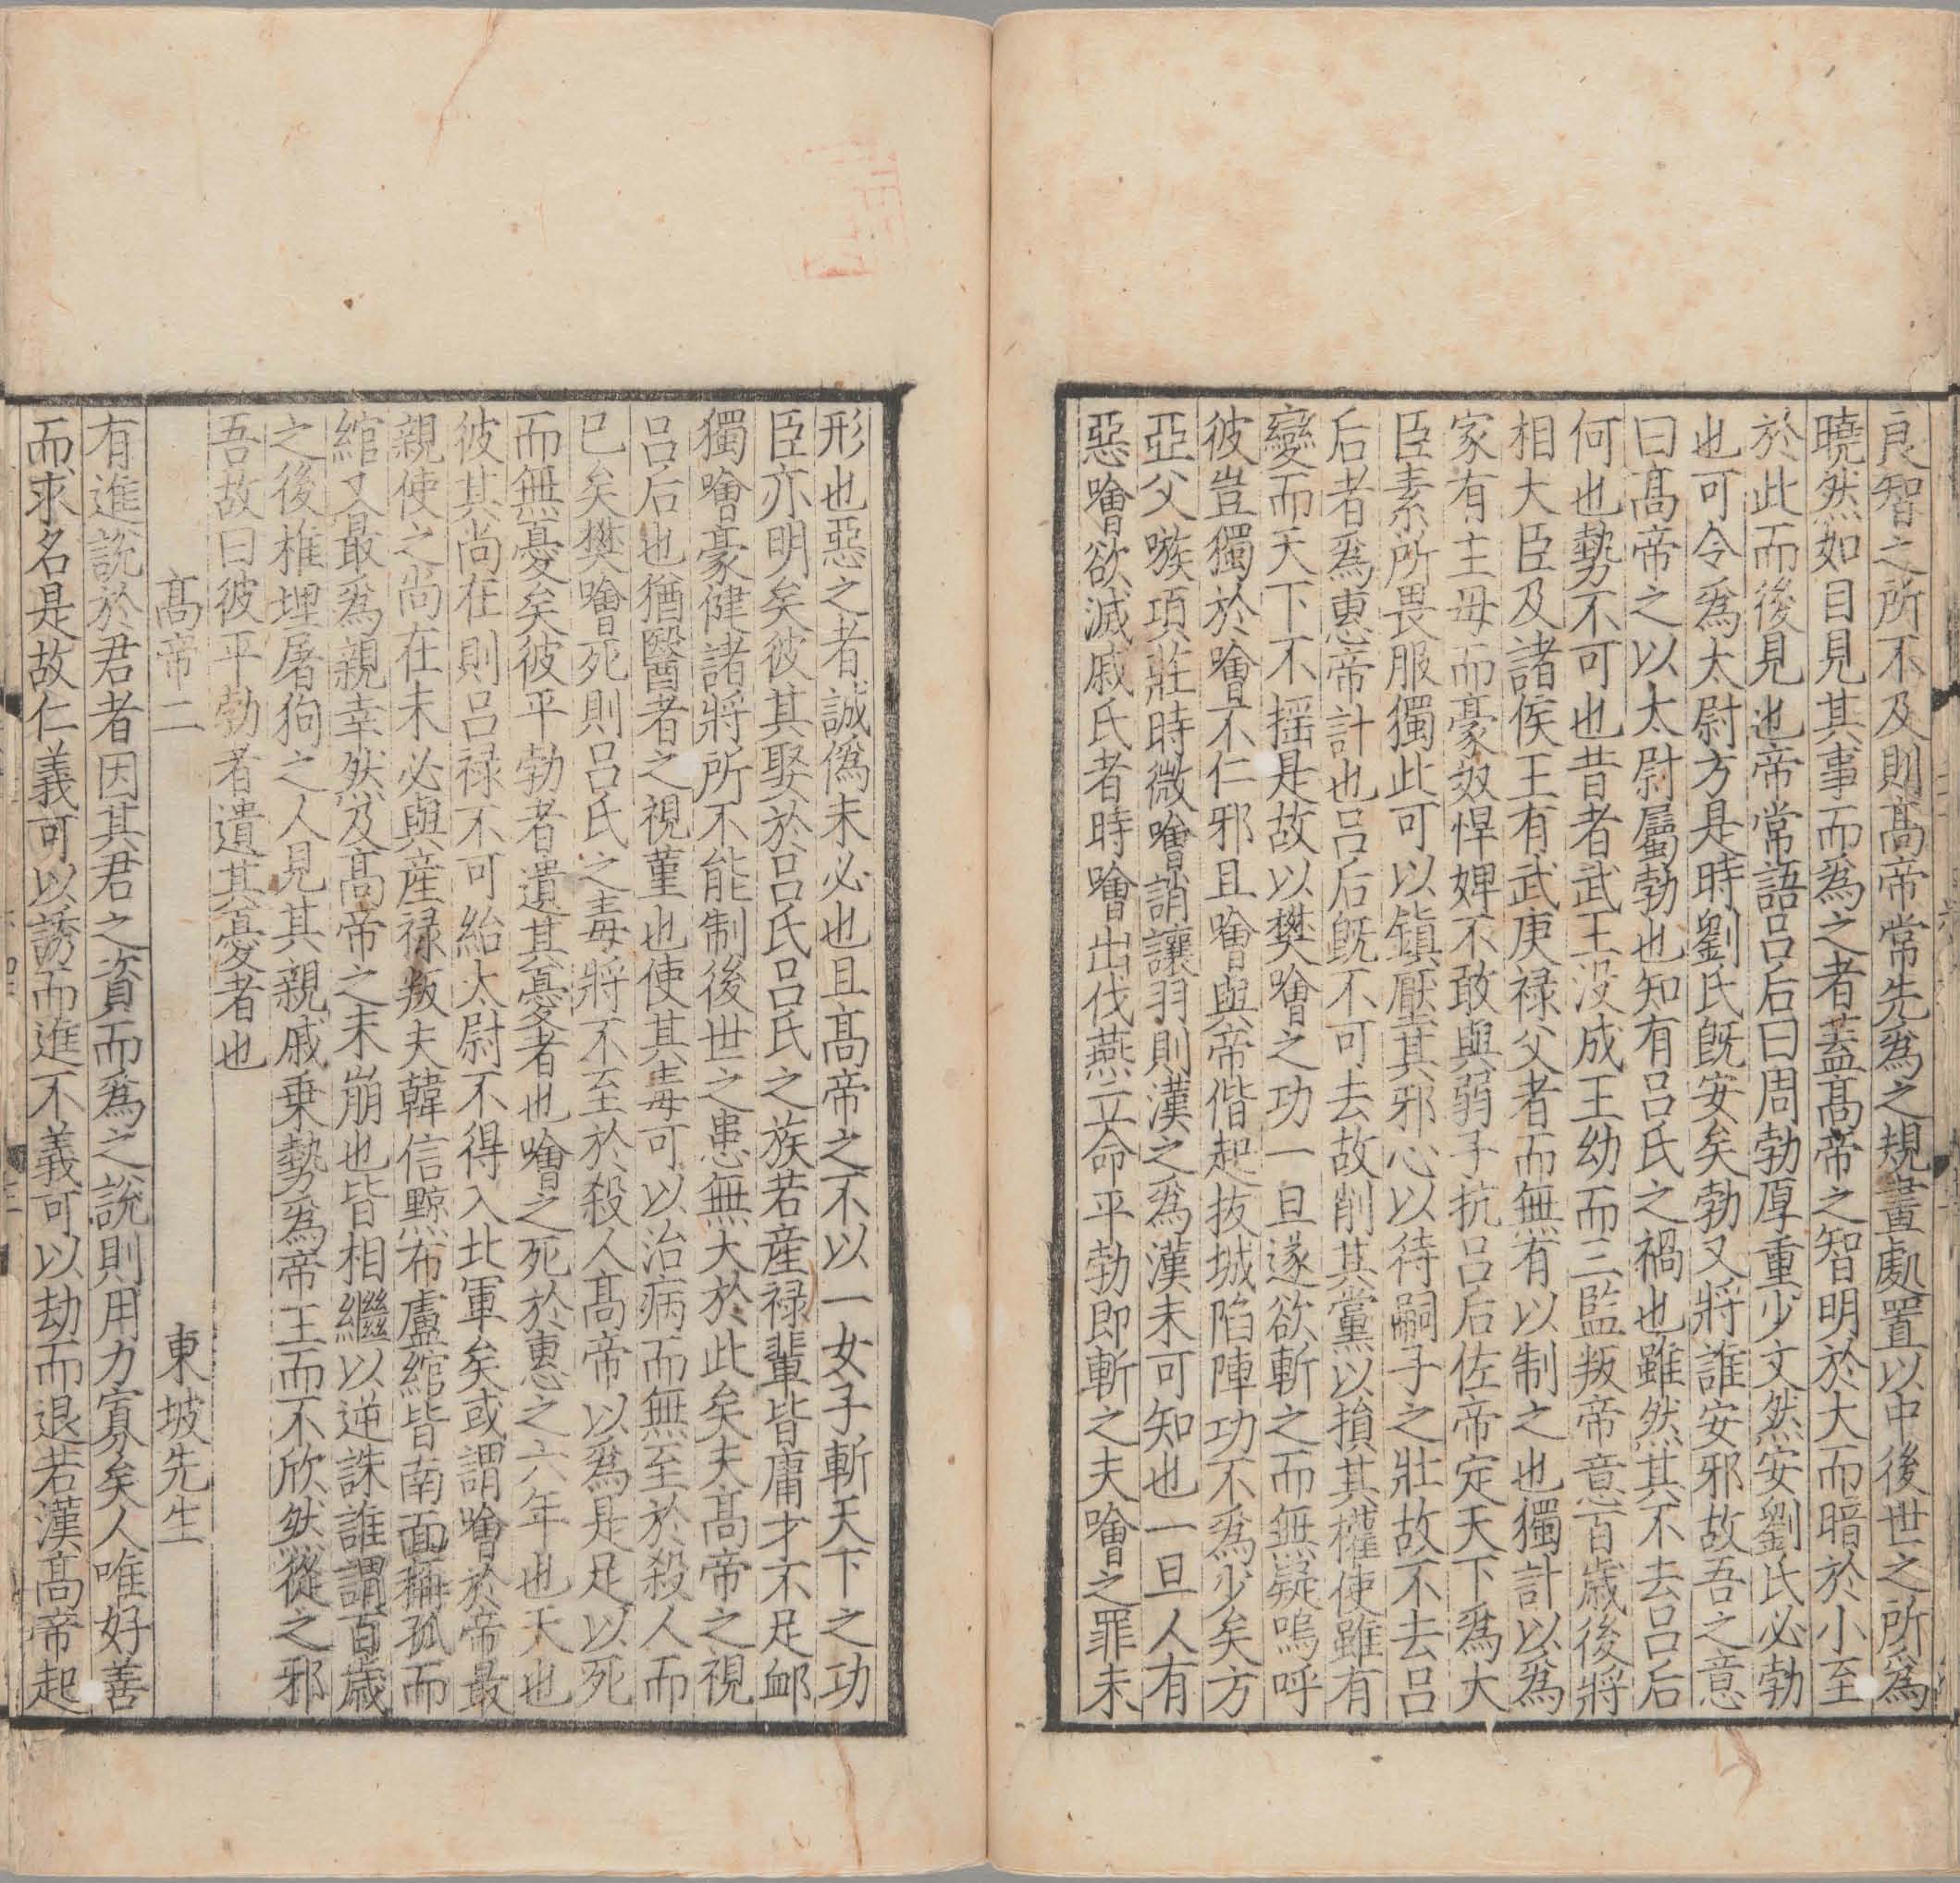 良智之所不及則髙帝常先爲之規畫處置以中後世之所爲
曉然如目見其事而爲之者蓋髙帝之智明於大而暗於小至
於此而後見也帝常語吕后曰周勃厚重少文然安劉氏必勃
也可令爲太尉方是時劉氏旣安矣勃又將誰安邪故吾之意
曰髙帝之以太尉屬勃也知有吕氏之禍也雖然其不去吕后
何也勢不可也昔者武王没成王幼而三監叛帝意百歳後將
相大臣及諸侯王有武庚禄父者而無有以制之也獨計以爲
家有主母而豪奴悍婢不敢與弱子抗吕后佐帝定天下爲大
臣素所畏服獨此可以鎮壓其邪心以待嗣子之壯故不去吕
后者爲惠帝計也吕后旣不可去故削其黨以損其權使雖有
變而天下不揺是故以樊噲之功一旦遂欲斬之而無疑嗚呼
彼豈獨於噲不仁邪且噲與帝偕起拔城陷陣功不爲少矣方
亞父嗾項莊時微噲誚讓羽則漢之爲漢未可知也一旦人有
惡噲欲滅戚氏者時噲出伐燕立命平勃即斬之夫噲之罪未
形也惡之者誠僞未必也且髙帝之不以一女子斬天下之功
臣亦明矣彼其娶於吕氏吕氏之族若産禄輩皆庸才不足䘏
獨噲豪健諸將所不能制後世之患無大於此矣夫髙帝之視
吕后也猶醫者之視菫也使其毒可以治病而無至於殺人而
已矣樊噲死則吕氏之毒將不至於殺人髙帝以爲是足以死
而無憂矣彼平勃者遺其憂者也噲之死於惠之六年也天也
彼其尚在則吕禄不可紿太尉不得入北軍矣或謂噲於帝最
親使之尚在未必與産禄叛夫韓信黥布盧綰皆南面稱孤而
綰又最爲親幸然及髙帝之未崩也皆相繼以逆誅誰謂百歳
之後椎埋屠狗之人見其親戚乗勢爲帝王而不欣然從之邪
吾故曰彼平勃者遺其憂者也
髙帝二　東坡先生
有進說於君者因其君之資而爲之說則用力寡矣人唯好善
而求名是故仁義可以誘而進不義可以劫而退若漢髙帝起